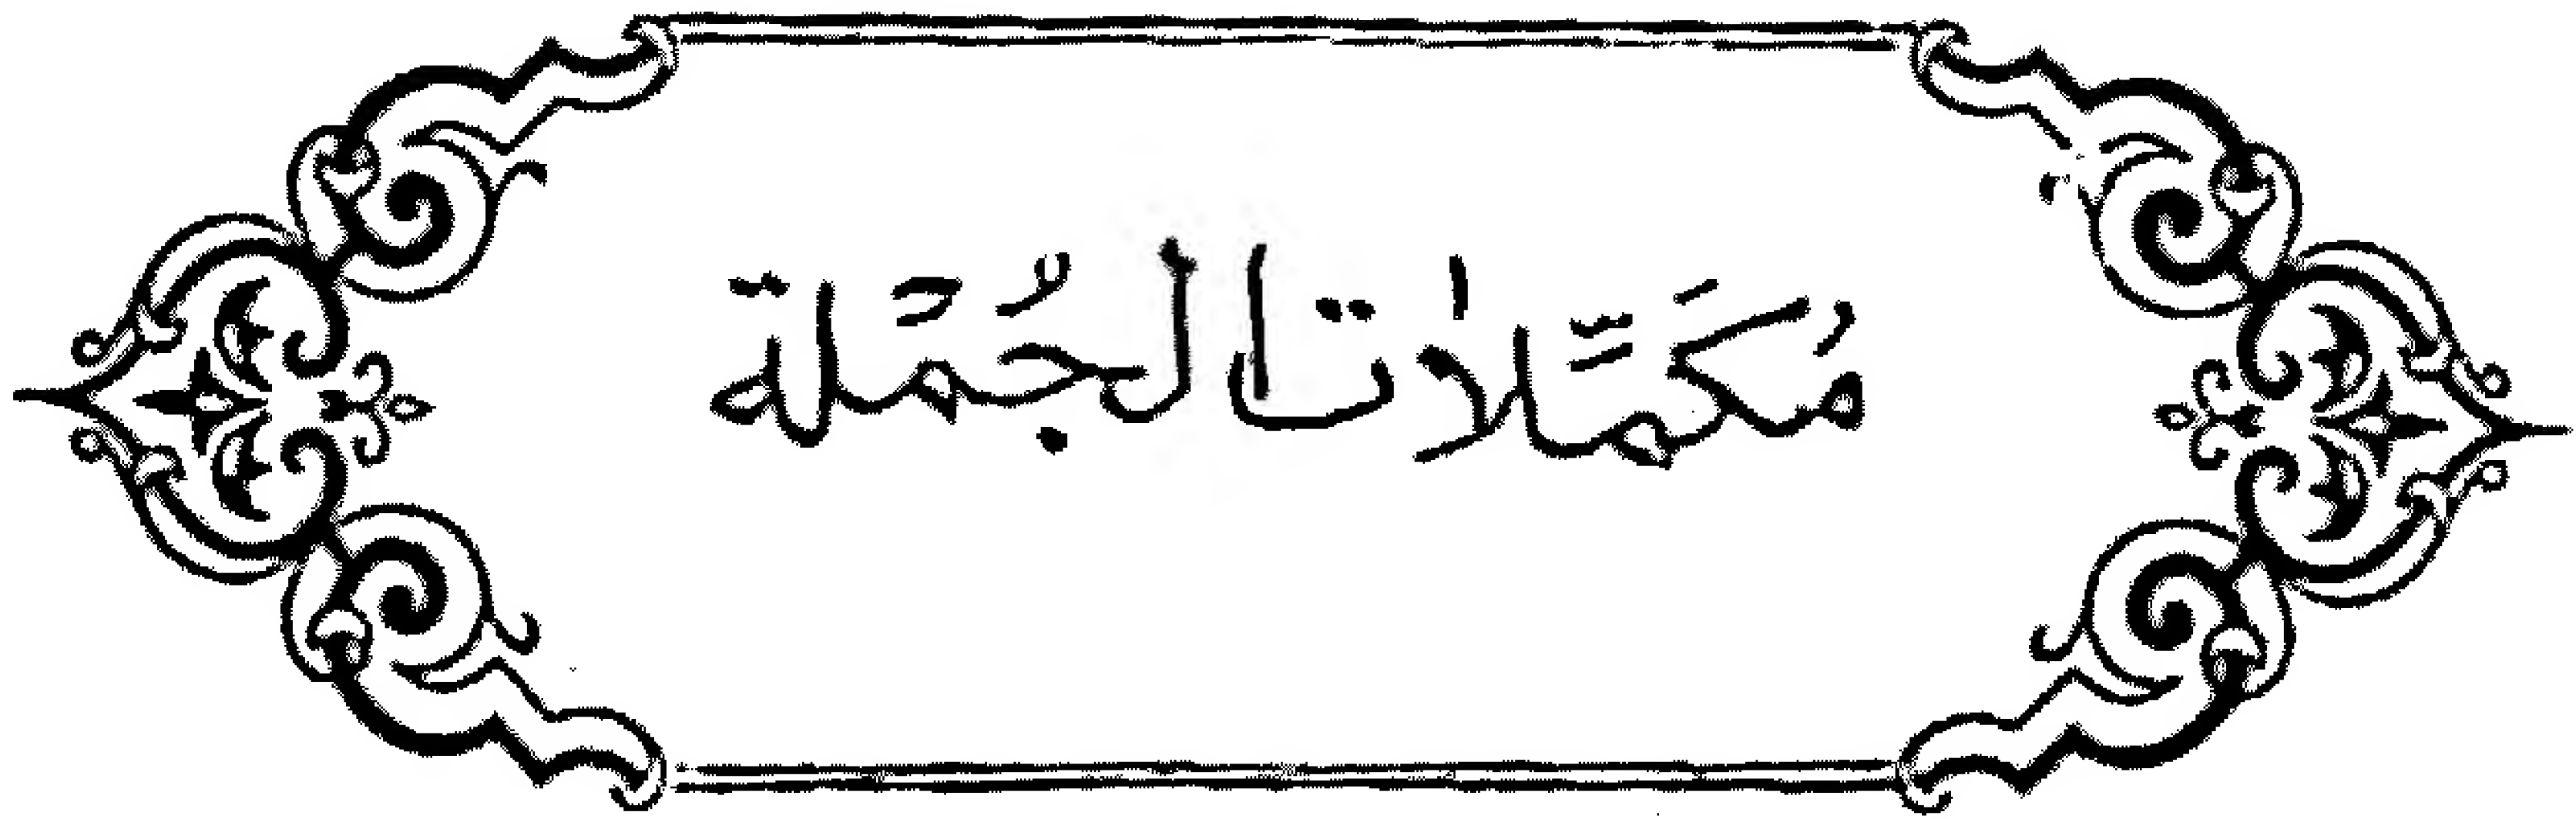 مُكَمِّلَات الجُمْلَة